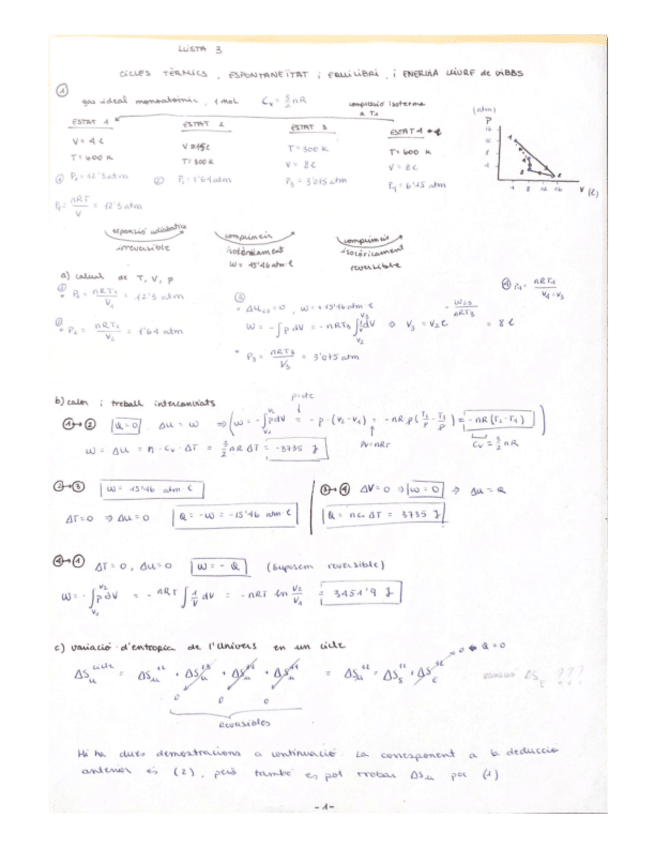 LLISTA 3
CICLES TÈRMICS, ESPONTANEÏTAT i EQUILIBRI, i ENERGIA LLIURE de GIBBS
① gas ideal monoatòmic, 1 mol Cv = 3/2 nR compressió isoterma a T1
ESTAT 1 ESTAT 2 ESTAT 3 ESTAT 4
V = 4 l T = 300 K T = 600 K
T = 600 K T = 300 K V = 8 l V = 8 l
① P1 = 12'3 atm ② P2 = 1'64 atm P3 = 3'075 atm P4 = 6'15 atm
P1 = nRT/V = 12'3 atm
(atm) P V (l)
expansió adiabàtica irreversible
comprimeix isotèrmicament W = 15'46 atm·l
comprimeix isocòricament reversible
a) càlcul de T, V, P
① • P1 = nRT1/V1 = 12'3 atm
② • P2 = nRT2/V2 = 1'64 atm
③ • ΔU23 = 0, W = +15'46 atm·l
W = -∫p dV = -nRT3 ∫ 1/V dV ⇒ V3 = V2 e^(-W23/nRT3) = 8 l
• P3 = nRT3/V3 = 3'075 atm
④ P4 = nRT4/V4=V3
b) calor i treball intercanviats
①→② Q=0. ΔU = W ⇒ (W = -∫pdV = -p·(V2-V1) = -nR p(T2/p - T1/p) = -nR(T2-T1))
p=cte
pV=nRT
Cv = 3/2 nR
W = ΔU = n·Cv·ΔT = 3/2 nR ΔT = -3735 J
②→③ W = 15'46 atm·l
ΔT=0 ⇒ ΔU=0 Q = -W = -15'46 atm·l
③→④ ΔV=0 ⇒ W=0 ⇒ ΔU = Q
Q = nCv ΔT = 3735 J
④→① ΔT=0, ΔU=0 W = -Q (suposem reversible)
W = -∫pdV = -nRT ∫ 1/V dV = -nRT ln V2/V1 = 3451'9 J
c) variació d'entropia de l'univers en un cicle
ΔSu cicle = ΔSu 12 + ΔSu 23 + ΔSu 34 + ΔSu 41 = ΔSu 12 = ΔSs 12 + ΔSe 12 → 0 ← Q=0
0 0 0
reversibles
ΔSe ???
Hi ha dues demostracions a continuació. La corresponent a la deducció
anterior és (2), però també es pot trobar ΔSu per (1)
-1-